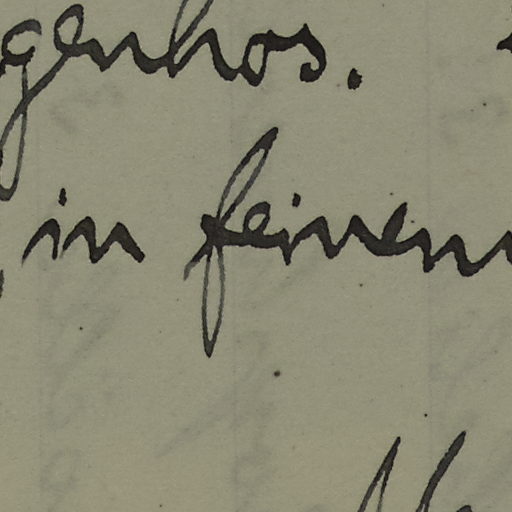 genhos.
in feinem